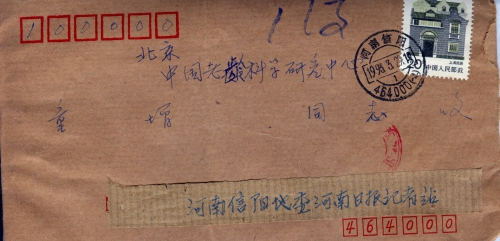 100000
北京
中国老龄科学研究中心
童增 同志 收
河南信阳
464000
中国人民邮政
河南信阳地委河南日报记者站
464000